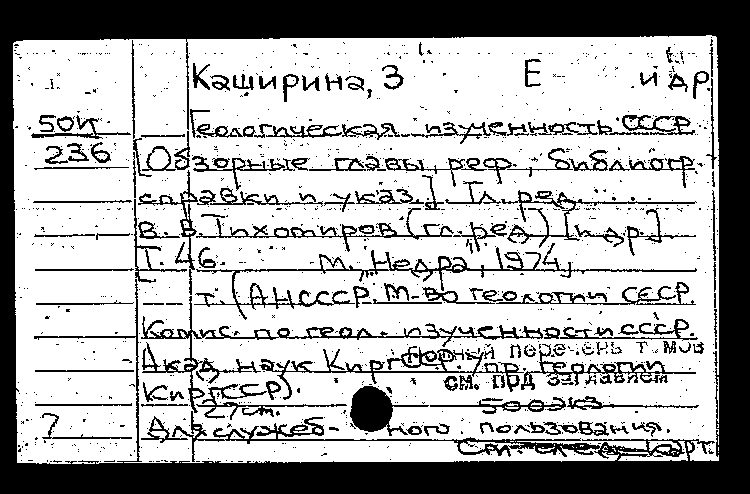 Каширина, З Е и др.
50И
Геологическая изученность СССР.
236
[Обзорные главы, реф., библиогр.
справки и указ.]. Гл. ред.
В. В. Тихомиров (гл. ред) [и др.]
Т. 46. М., "Недра", 1974.
т. (АН СССР. М-во геологии СССР.
Комис. по геол. изученности СССР.
Акад. наук Кирг ССР. Упр. геологии
Полный перечень томов
Кирг ССР).
см. под заглавием
27 см.
500 экз.
7 Для служеб- ного пользования.
См. след. карт.